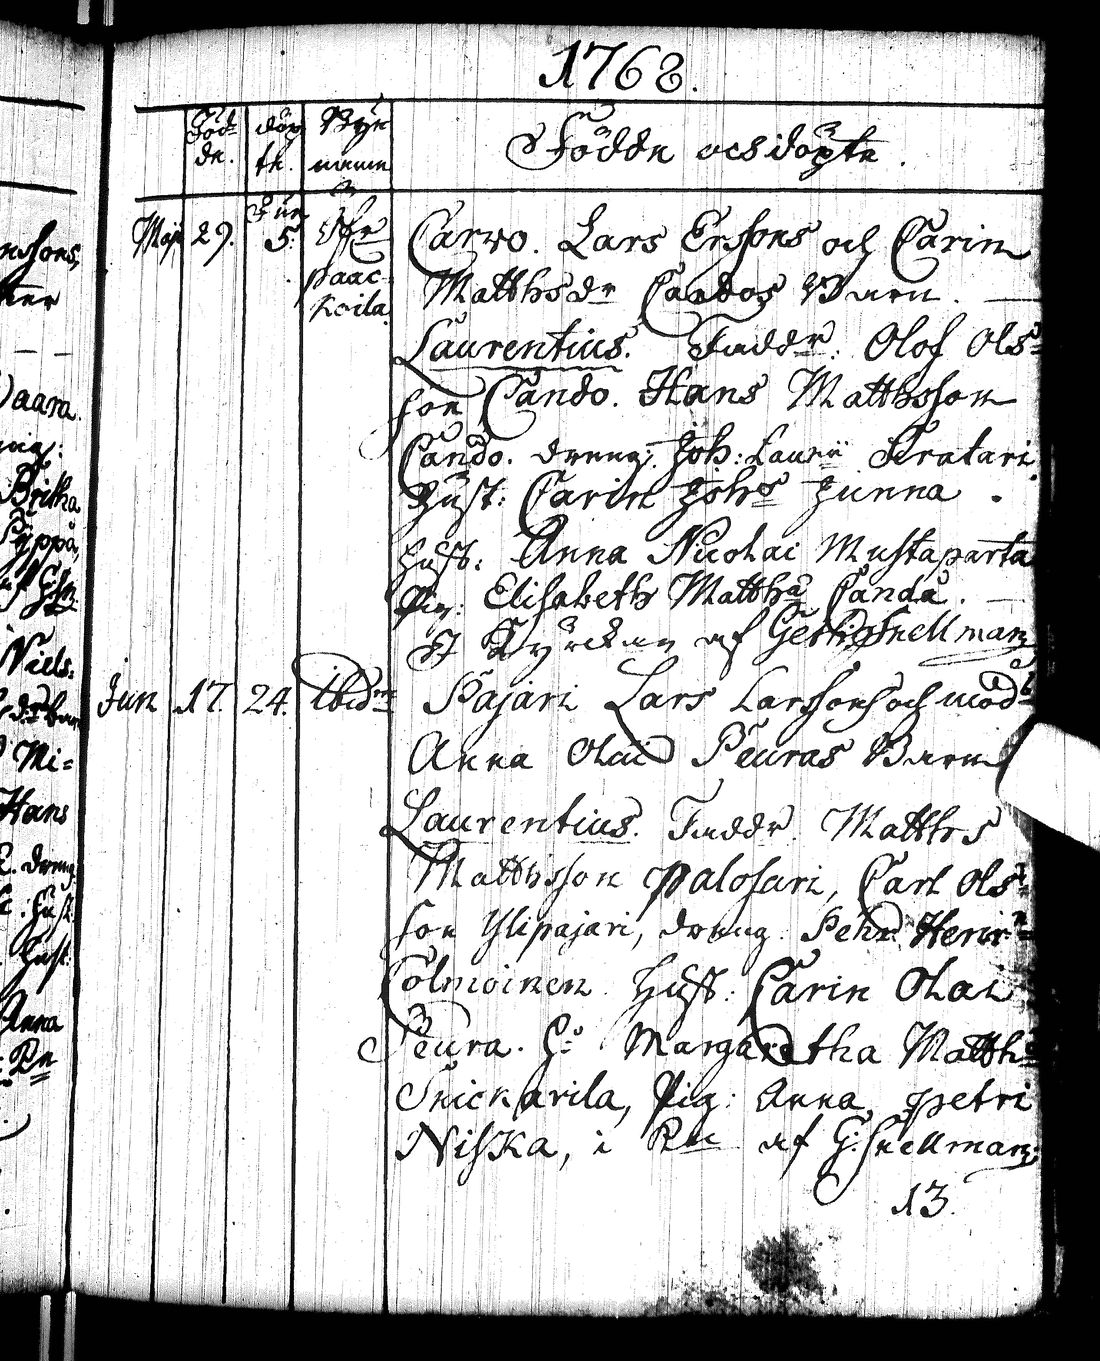 1768.
Föd= döp Byn
de. te. namn
Födde och döpte.
Maji 29. Jun 5. Öfr
paac-
koila
Carvo. Lars Ersons och Carin
Matthsdr Candos Barn.
Laurentius. Faddr: Olof Ols=
son Cando. Hans Matthsson
Cando. dreng. Joh: Laurii
hust: Carin Johs Junna.
hust: Anna Nicolai Mustaparta
Pig: Elisabeth Matthæ Canda.
Kyrckan af Snellman
Jun 17. 24. Ibidm Pajari Lars Larsons och mod
Anna Olai Peuras Barn
Laurentius. Faddr Matths
Matthsson Palosari, Carl Ols=
son Ylipajari, dreng: Pehr Henr=
Colmoinen hust: Carin Olai
Peura. H: Margaretha Matth
Snickarila, Pig: Anna petri
Niska, i af G: Snellman
13.
nssons
Vaara.
Britha
Pyppå,
Niels.
Mi=
Hans
dreng
hust
hust:
Anna